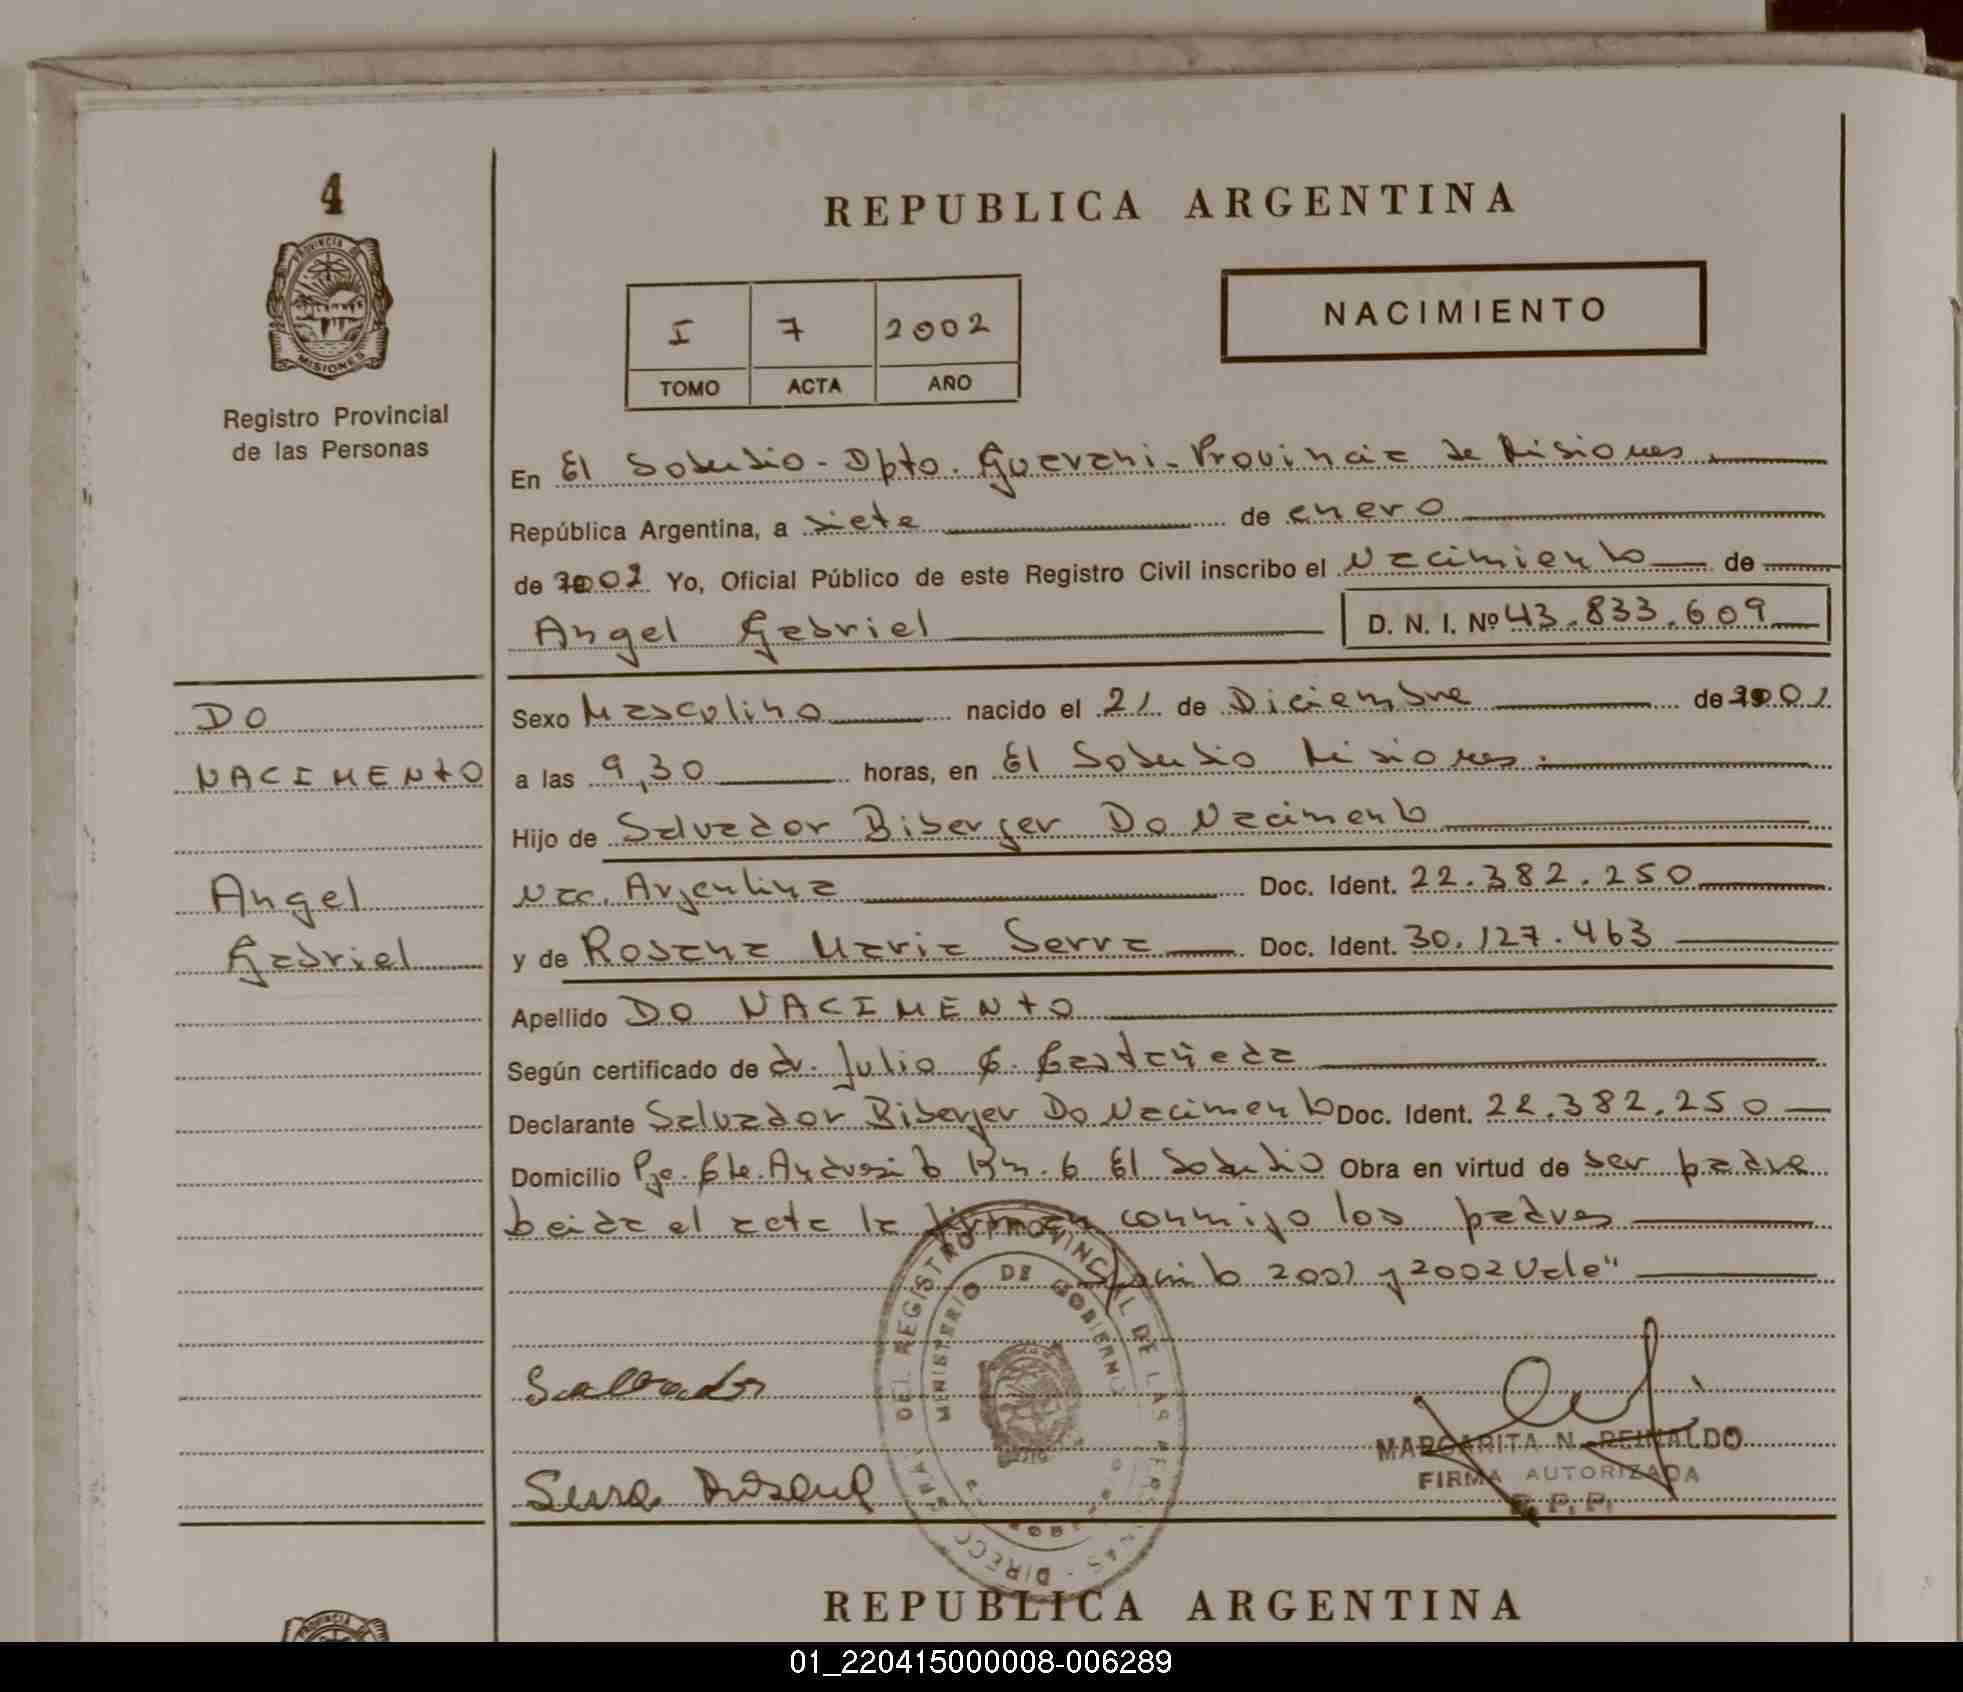 4
PROVINCIA DE
MISIONES
Registro Provincial
de las Personas
REPUBLICA ARGENTINA
I 7 2002
TOMO ACTA AÑO
NACIMIENTO
En El Soberbio - Dpto. Guarani - Provincia de Misiones
República Argentina, a siete de enero
de 2002 Yo, Oficial Público de este Registro Civil inscribo el Nacimiento de
Angel Gabriel D. N. I. Nº 43.833.609
DO
NACIMENTO
Angel
Gabriel
Sexo Masculino nacido el 21 de Diciembre de 2001
a las 9,30 horas, en El Soberbio Misiones.
Hijo de Salvador Biberger Do Nacimento
Nac. Argentina Doc. Ident. 22.382.250
y de Rosana Maria Serra Doc. Ident. 30.127.463
Apellido DO NACIMENTO
Según certificado de dr. Julio G. Castañeda
Declarante Salvador Biberger Do Nacimento Doc. Ident. 22.382.250
Domicilio Pje. Cte. Andresito Km. 6 El Soberbio Obra en virtud de ser padre
Leida el acta la firman conmigo los padres
2001 y 2002 Vale"
Salvador
Serra Rosana
DEL REGISTRO PROVINCIAL DE LAS PERSONAS
MINISTERIO DE GOBIERNO
MARGARITA N. REINALDO
FIRMA AUTORIZADA
R. P. P.
REPUBLICA ARGENTINA
01_220415000008-006289